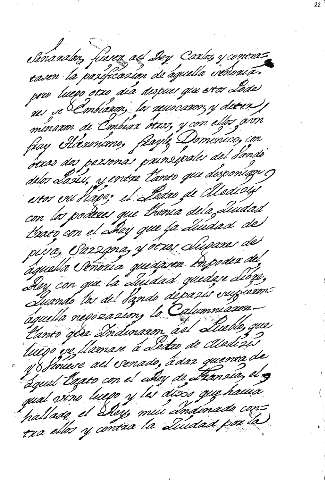 22
señaradas, fuesen al Rey Carlos, y contra-
tasen la pacificasion de aquella señoria.
pero luego otro dia despues que estos Pode
res se Embiaron, los reuocaron, y deter
minaron de Embiar otros, y con ellos a un
fray Geronimo, frayle Dominico, con
otras dos personas principales del vando
delos Pasis, y entre tanto que disponian
estos su viage, el Pedro de Medicis
con los poderes que traia dela Ciudad
trato con el Rey que la Ciudad de
pisa, Sarzana, y otros Lugares de
aquella Señoria quedasen En poder del
Rey, con que la Ciudad quedase Libre,
Quando los del vando de pasis supieron
aquella negozazion, lo Calumniaron
tanto que Indinaron al Pueblo, que
luego En llaman a Pedro de Medicis
y viniese al senado, a dar quenta de
aquel trato con el Rey de Francia, el
qual vino luego y les dixo que hauia
hallado, el Rey, mui Indinado con-
tra ellos y contra la Ciudad por la